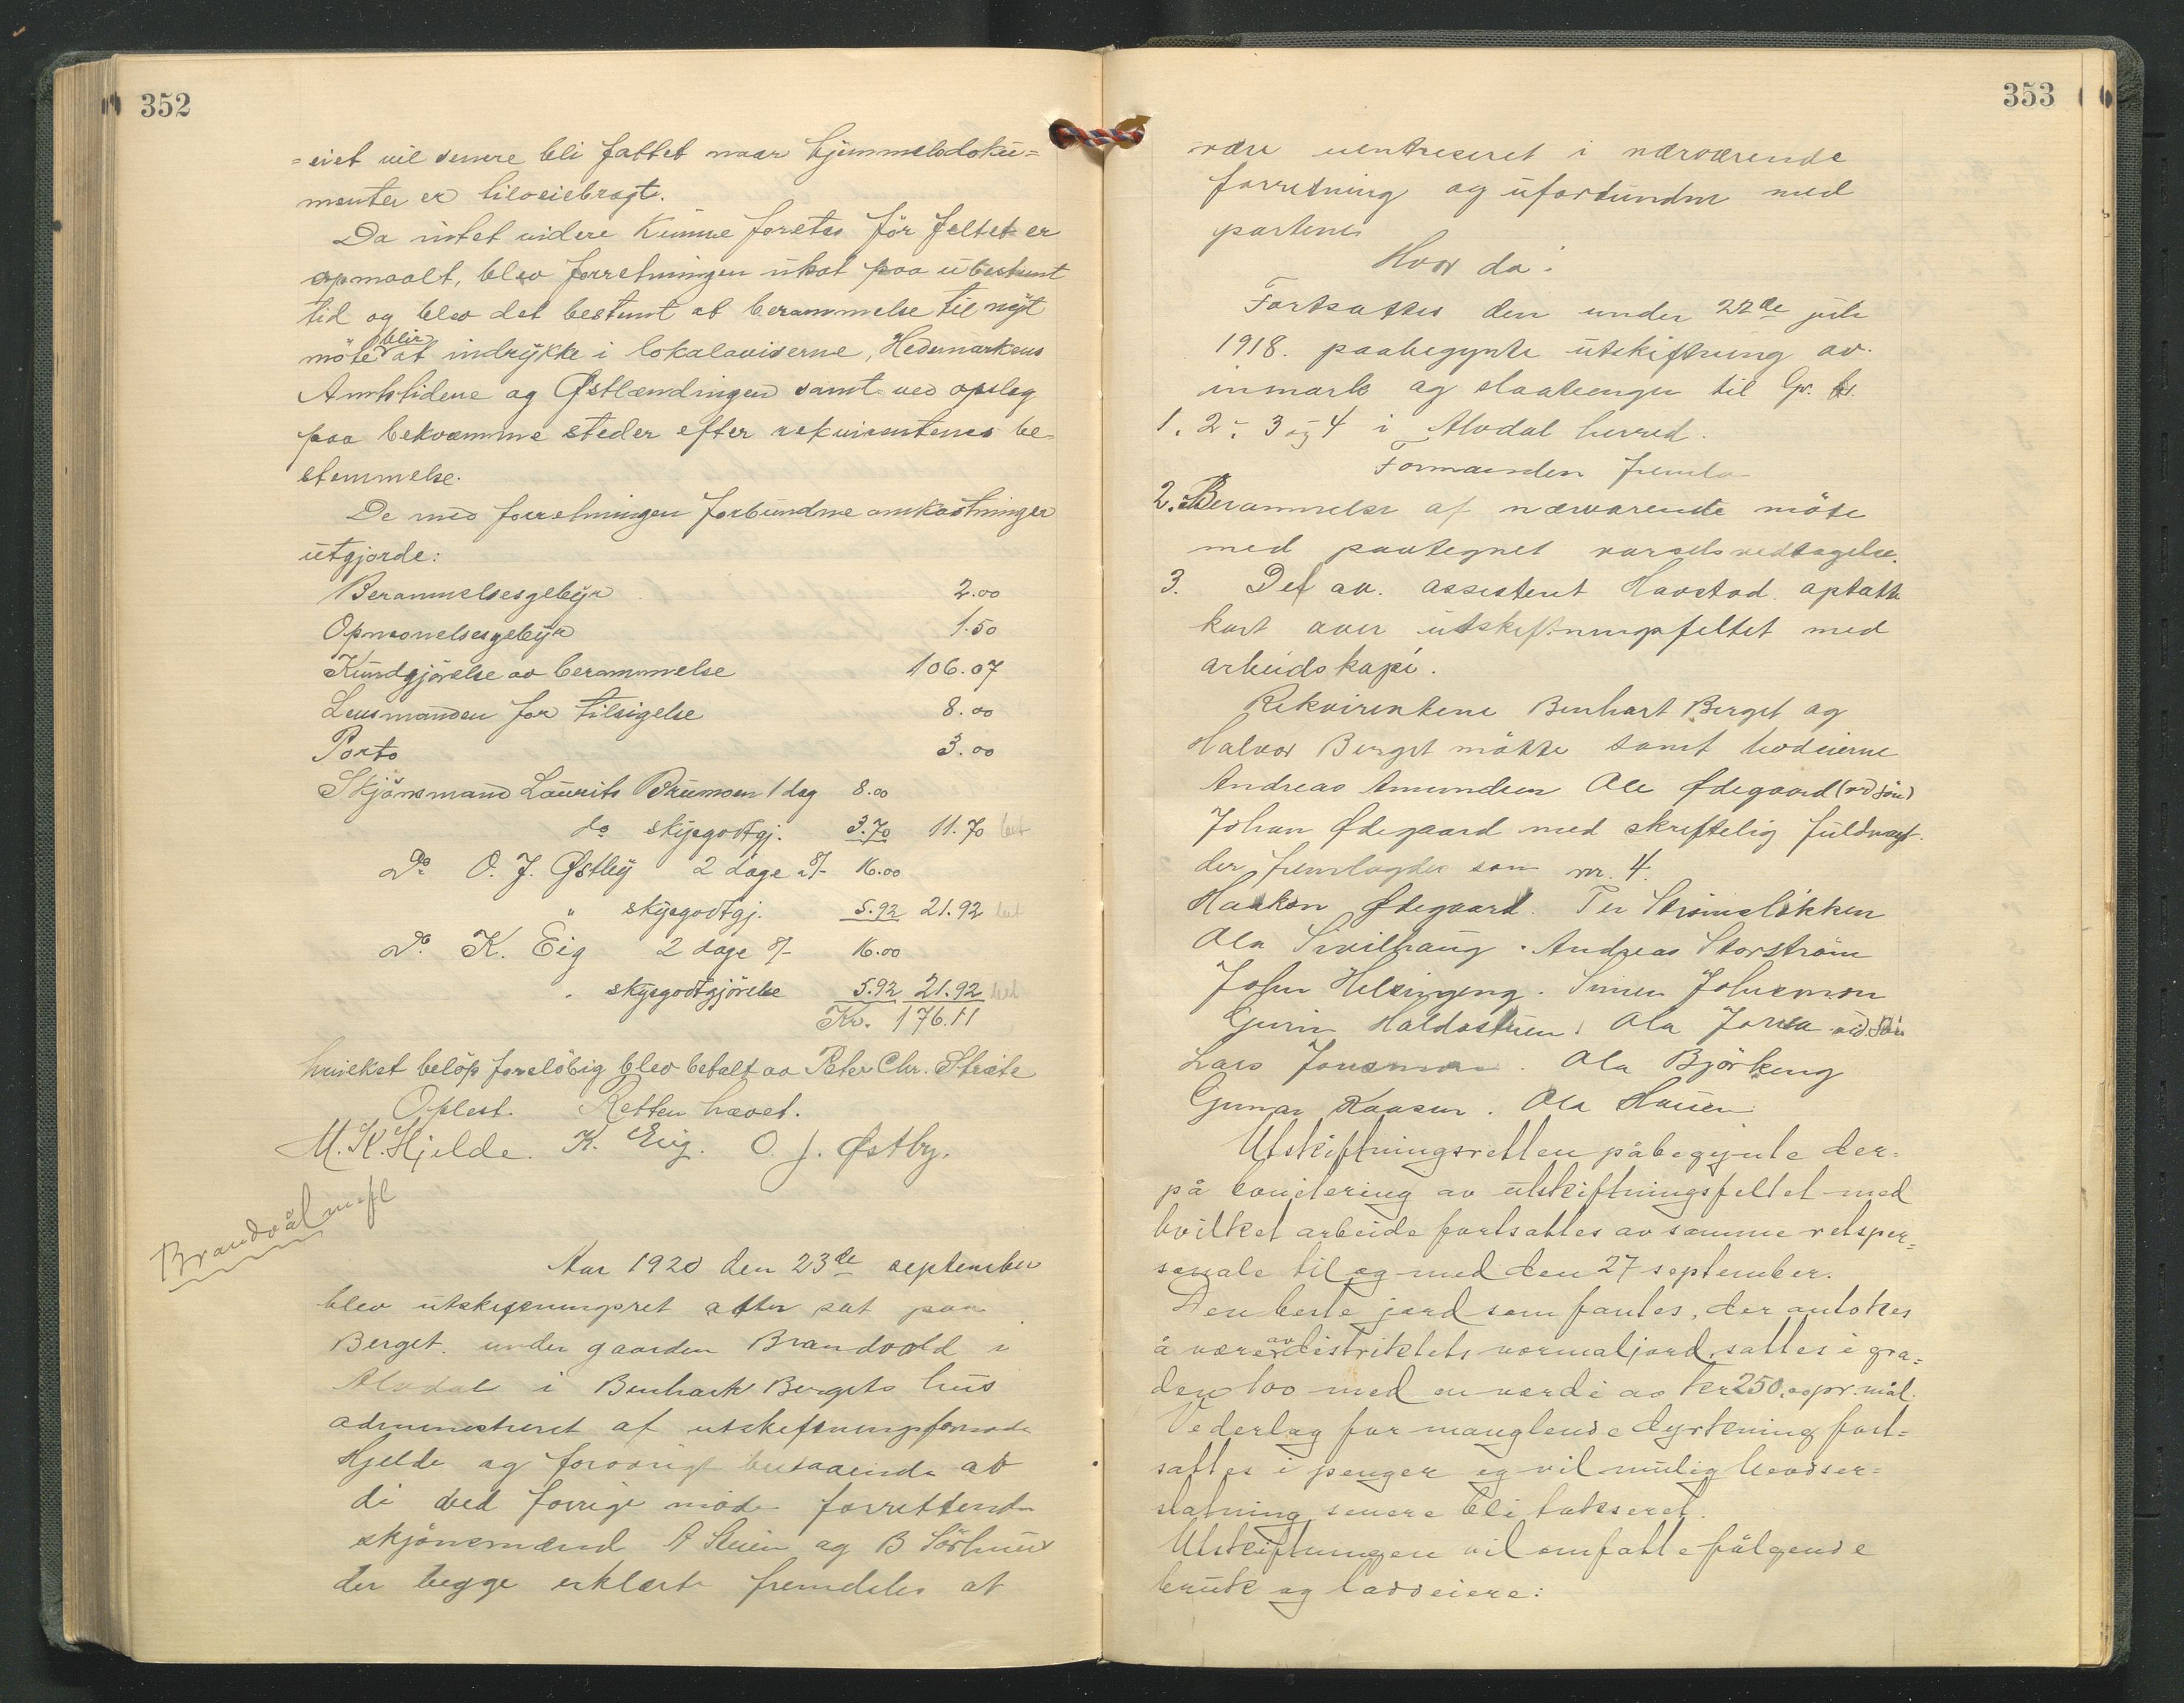 352
=eiet vil senere bli fattet naar hjemmelsdoku=
menter er tilveiebragt.
Da intet videre kunne foretas før feltet er
opmaalt, blev forretningen utsat paa ubestemt
tid og blev det bestemt at berammelse til nyt
møte blir at indrykke i lokalaviserne, Hedemarkens
Amtstidene og Østlændingen samt ved opslag
paa bekvæmme steder efter rekvirentenes be-
stemmelse.
De med forretningen forbundne omkostninger
utgjorde:
Berammelsesgebyr 2.00
Opnevnelsesgebyr 1.50
Kundgjørelse av berammelse 106.07
Lensmanden for tilsigelse 8.00
Porto 3.00
Skjønsmand Laurits Brumoen 1 dag 8.00
do skysgodtgj. 3.70 11.70 bet
Do O. J. Østby 2 dage 8/- 16.00
" skysgodtgj. 5.92 21.92 bet
Do K. Eig 2 dage 8/- 16.00
" skysgodtgjørelse 5.92 21.92 bet
Kr. 176.11
hvilket beløp foreløbig blev betalt av Peter Chr. Strete
Oplest. Retten hævet.
M. K. Hjelde. K. Eig. O. J. Østby.
Brandvål m.fl
Aar 1920 den 23de september
blev utskiftningsret atter sat paa
Berget under gaarden Brandvold i
Alvdal i Benhart Bergets hus
administreret af utskiftningsformand
Hjelde og forøvrigt bestaaende av
de ved forrige møde forrettende
skjønsmænd A Steien og B Sörhuus
der begge erklærte fremdeles at
353
være uintreseret i nærværende
forretning og uforbunden med
partene
Hvor da:
Fortsattes den under 22de juli
1918. paabegynte utskiftning av
inmark og slaatenger til Gr. Nr.
1. 2, 3 og 4 i Alvdal herred.
Formanden fremla
2. Berammelse af nærværende møte
med paategnet varselsvedtagelse.
3. Det av assistent Havstad optatte
kart over utskiftningsfeltet med
arbeidskopi.
Rekvirentene Benhart Berget og
Halvor Berget møtte samt lodeierne
Andreas Amundsen Ole Ødegaard (ved søn)
Johan Ødegaard med skriftelig fuldmagt
der fremlagdes som nr. 4.
Haakon Ødegaard. Per Strømsløkken
Ola Sivilhaug. Andreas Storstrøm
John Helsingeng. Simen Johnsmoen
Gunin Haldostuen. Ola Jorea ved søn
Lars Jonsmoen. Ola Björkeng
Gunar Kaasen. Ola Hauen
Utskiftningsretten påbegynte der=
på bonitering av utskiftningsfeltet med
hvilket arbeide fortsattes av samme retsper=
sonale til og med den 27 september.
Den beste jord som fantes, der antokes
å være av distriktets normaljord, sattes i gra=
den 100 med en værdi av kr 250.00 pr. mål.
Vederlag for manglende dyrkning fast=
sattes i penger og vil mulig hevdser=
statning senere bli takseret.
Utskiftningen vil omfatte følgende
bruk og loddeiere: